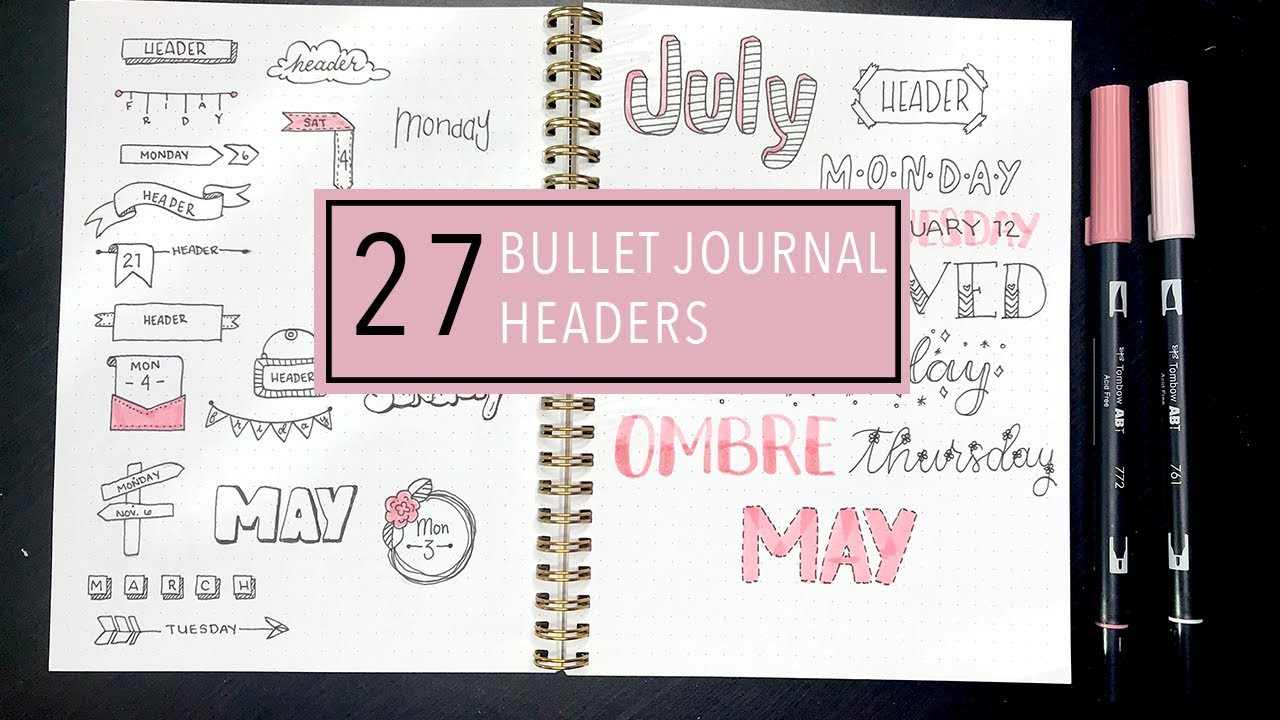 HEADER
header
FRIDAY
SAT
4
monday
MONDAY 6
HEADER
21
HEADER
HEADER
MON
-4-
HEADER
friday
MONDAY
NOV. 6
MAY
Mon
3
MARCH
TUESDAY
July
HEADER
M·O·N·D·A·Y
27 BULLET JOURNAL
HEADERS
UARY 12
VED
OMBRE
thursday
MAY
Tombow ABT
Acid Free
772
Tombow ABT
Acid Free
761